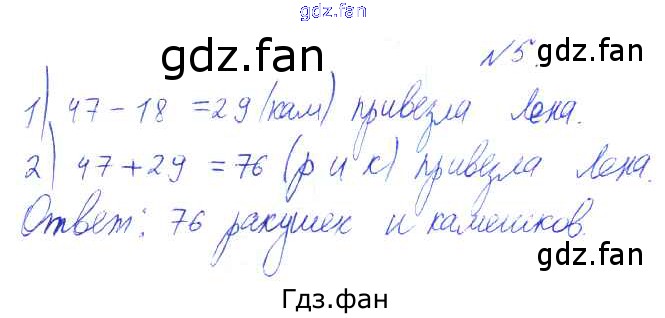 gdz.fan
gdz.fan
gdz.fan
N5.
1) 47-18 =29 (кам) привезла Лена.
2) 47+29 =76 (р и к) привезла Лена.
Ответ: 76 ракушек и камешков.
gdz.fan
gdz.fan
Гдз.фан